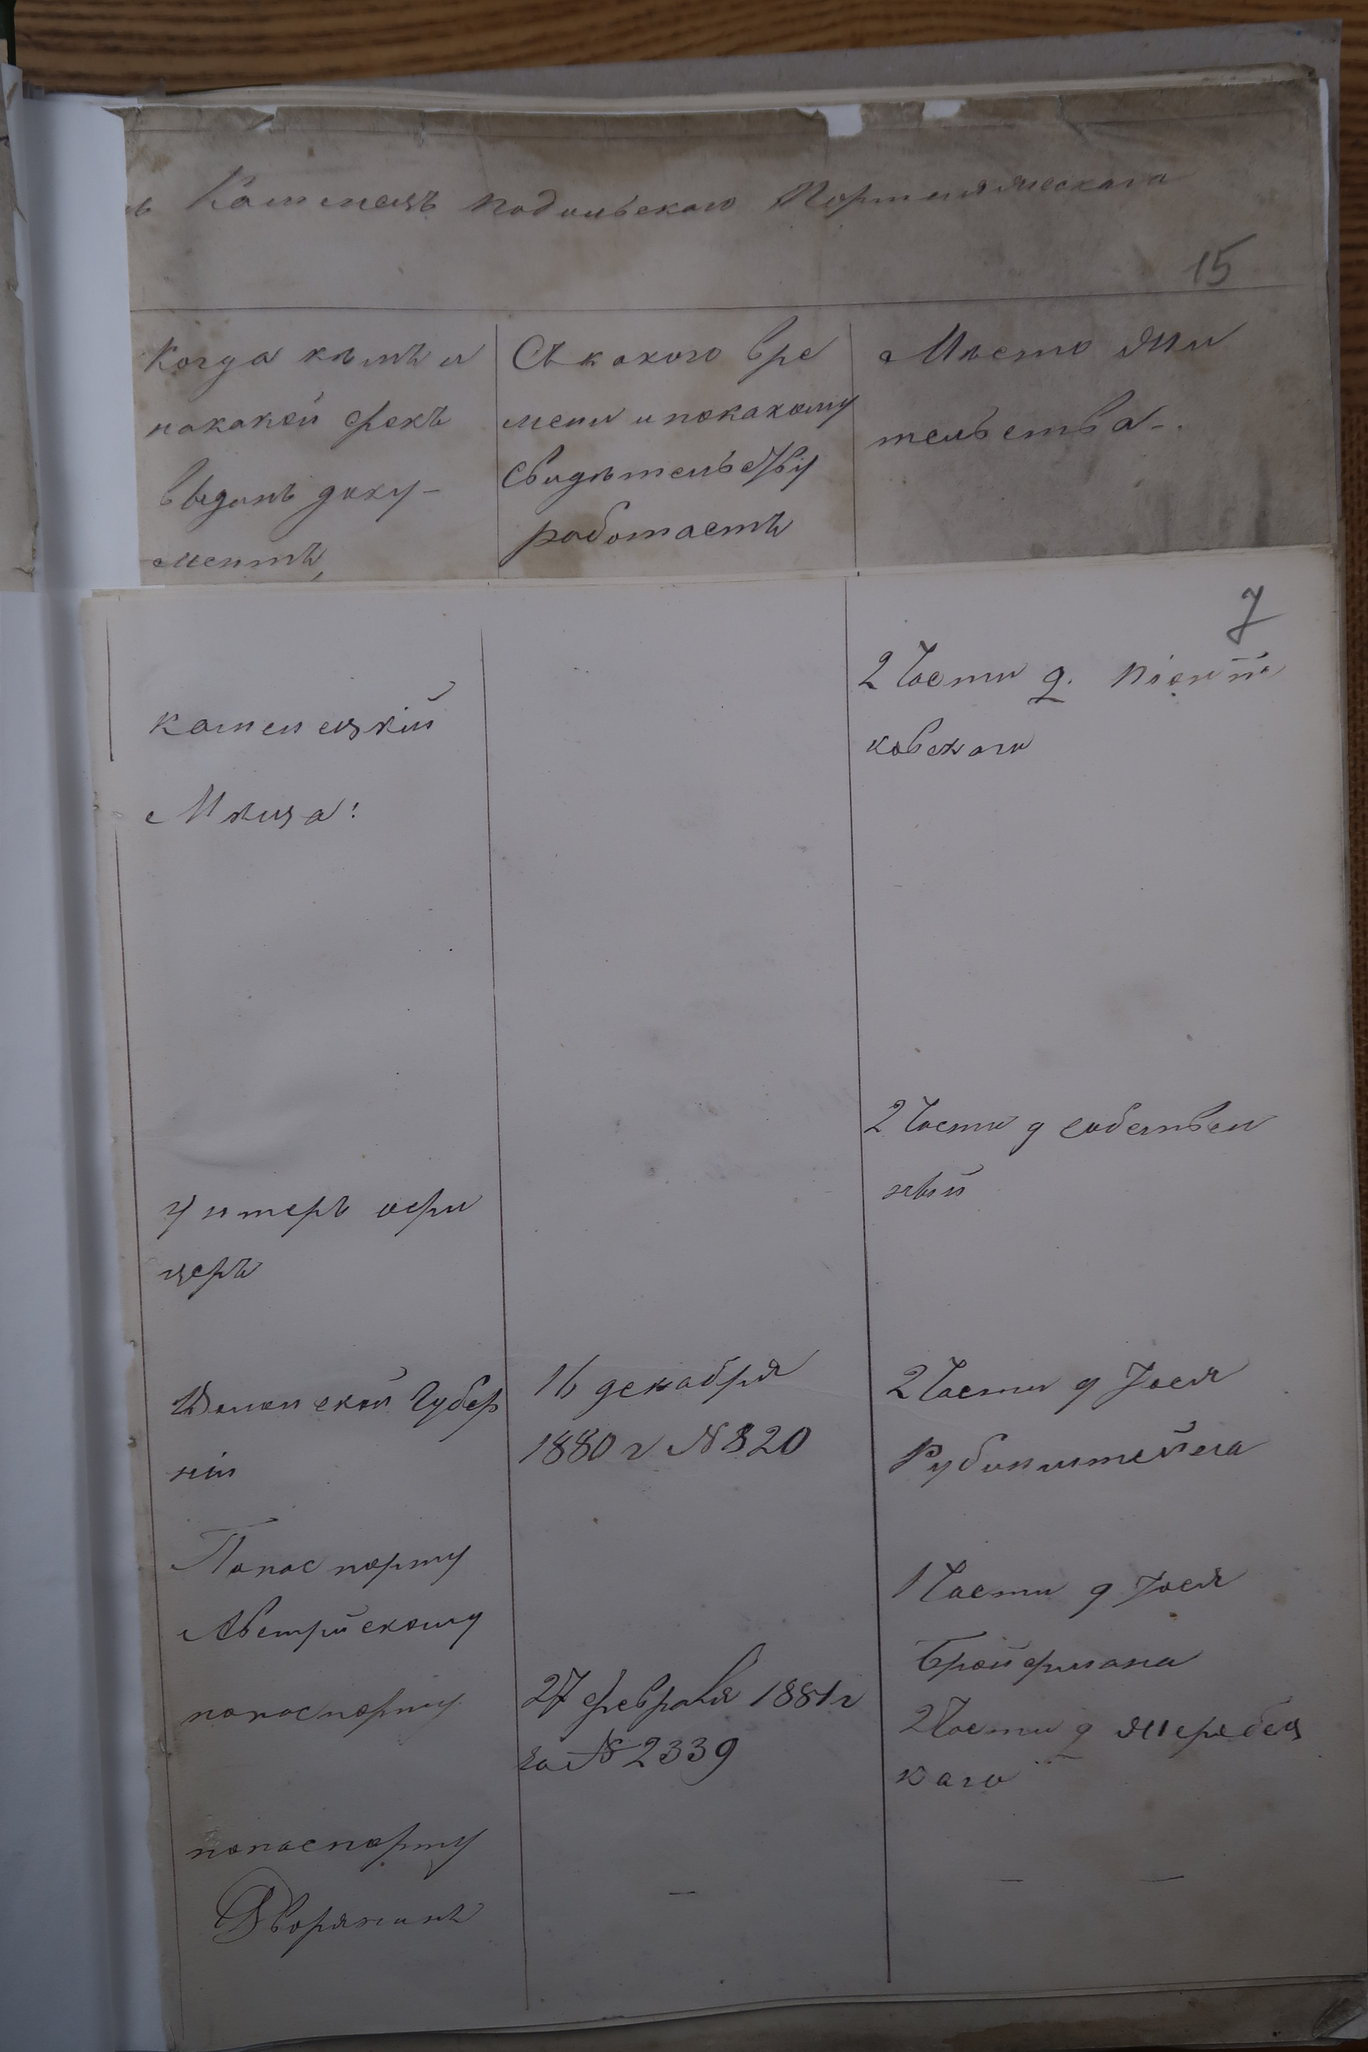 ъ Каменецъ подольскаго Портняжескаго
15
Когда кѣмъ и
накакой срокъ
выданъ доку-
ментъ,
Съ какого вре
мени и покакому
свидѣтельству
работаетъ
Мѣсто жи
тельства.
7
каменецкій
Мѣща:
2 Части д.
ковскаго
Унтеръ офи
церъ
2 Части д собствен
ный
Волынской Губер
ніи
16 декабря
1880 г № 820
2 Части д Іося
Рубинштейна
Попаспорту
Австрійскому
1 Части д Іося
Бройтмана
попаспорту
27 февраля 1881 г
за № 2339
2 Части д Жеребец
каго
попаспорту
Дворянинъ
— — —